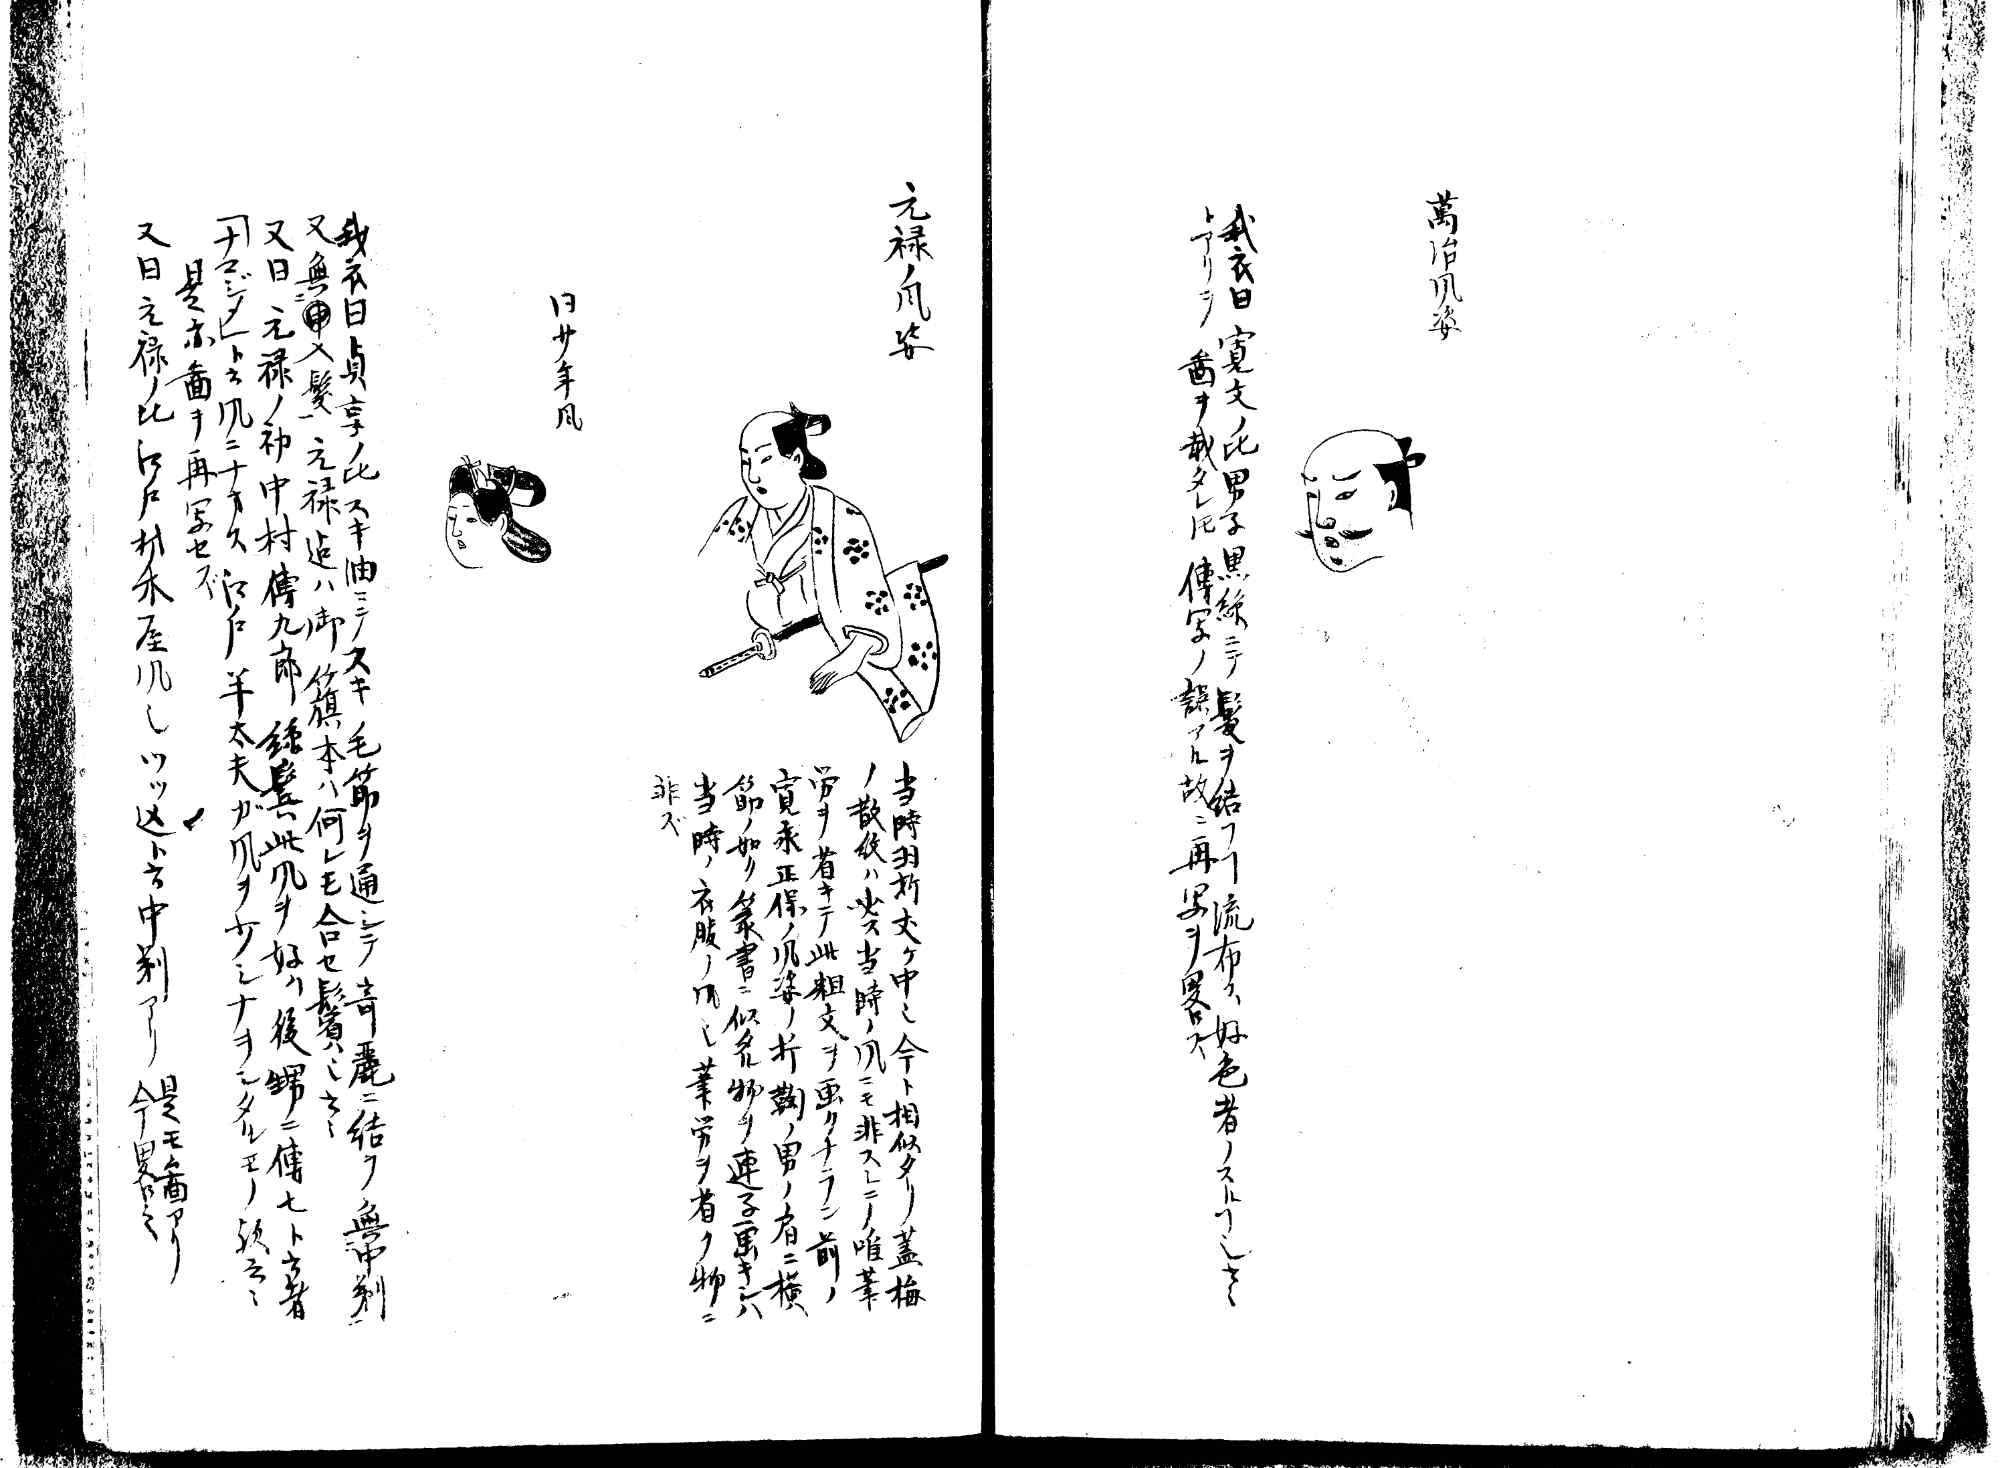 萬治風姿
我衣曰寛文ノ比男子黒絲ニテ髪ヲ結フヿ流布ス好色者ノスルヿ也云々
トアリテ 啚ヲ載タレ𪜈傳写ノ誤アル故ニ再写ヲ畧ス
元禄ノ風姿
当時羽折丈ケ中也今ト相似タリ蓋梅
ノ散紋ハ必ス当時ノ風ニモ非ス只ニノ唯筆
労ヲ省キテ此粗文ヲ画クナラン前ノ
寛永正保ノ風姿ノ折鞠ノ男ノ肩ニ横
筋ノ如ク篆書ニ似タル物ヲ連子画キシハ
当時ノ衣服ノ風也筆労ヲ省ク物ニ
非ズ
同廿年風
我衣曰貞享ノ比スキ油ニテスキ毛筋ヲ通シテ奇麗ニ結フ無中剃ニ
又無申ニ入髪元禄迠ハ御籏本ハ何レモ合セ鬢ハ也云々
又曰元禄ノ初中村傳九郎絲鬢此風ヲ好ハ後甥ニ傳七ト云者
「ナマジメ」ト云風ニナホス江戸半太夫ガ風ヲ少シナヲシタルモノ欤云々
是亦啚ヲ再写セズ
又曰元禄ノ比江戸材木屋風也ツッ込ト云中剃アリ 是モ啚アリ
今畧之